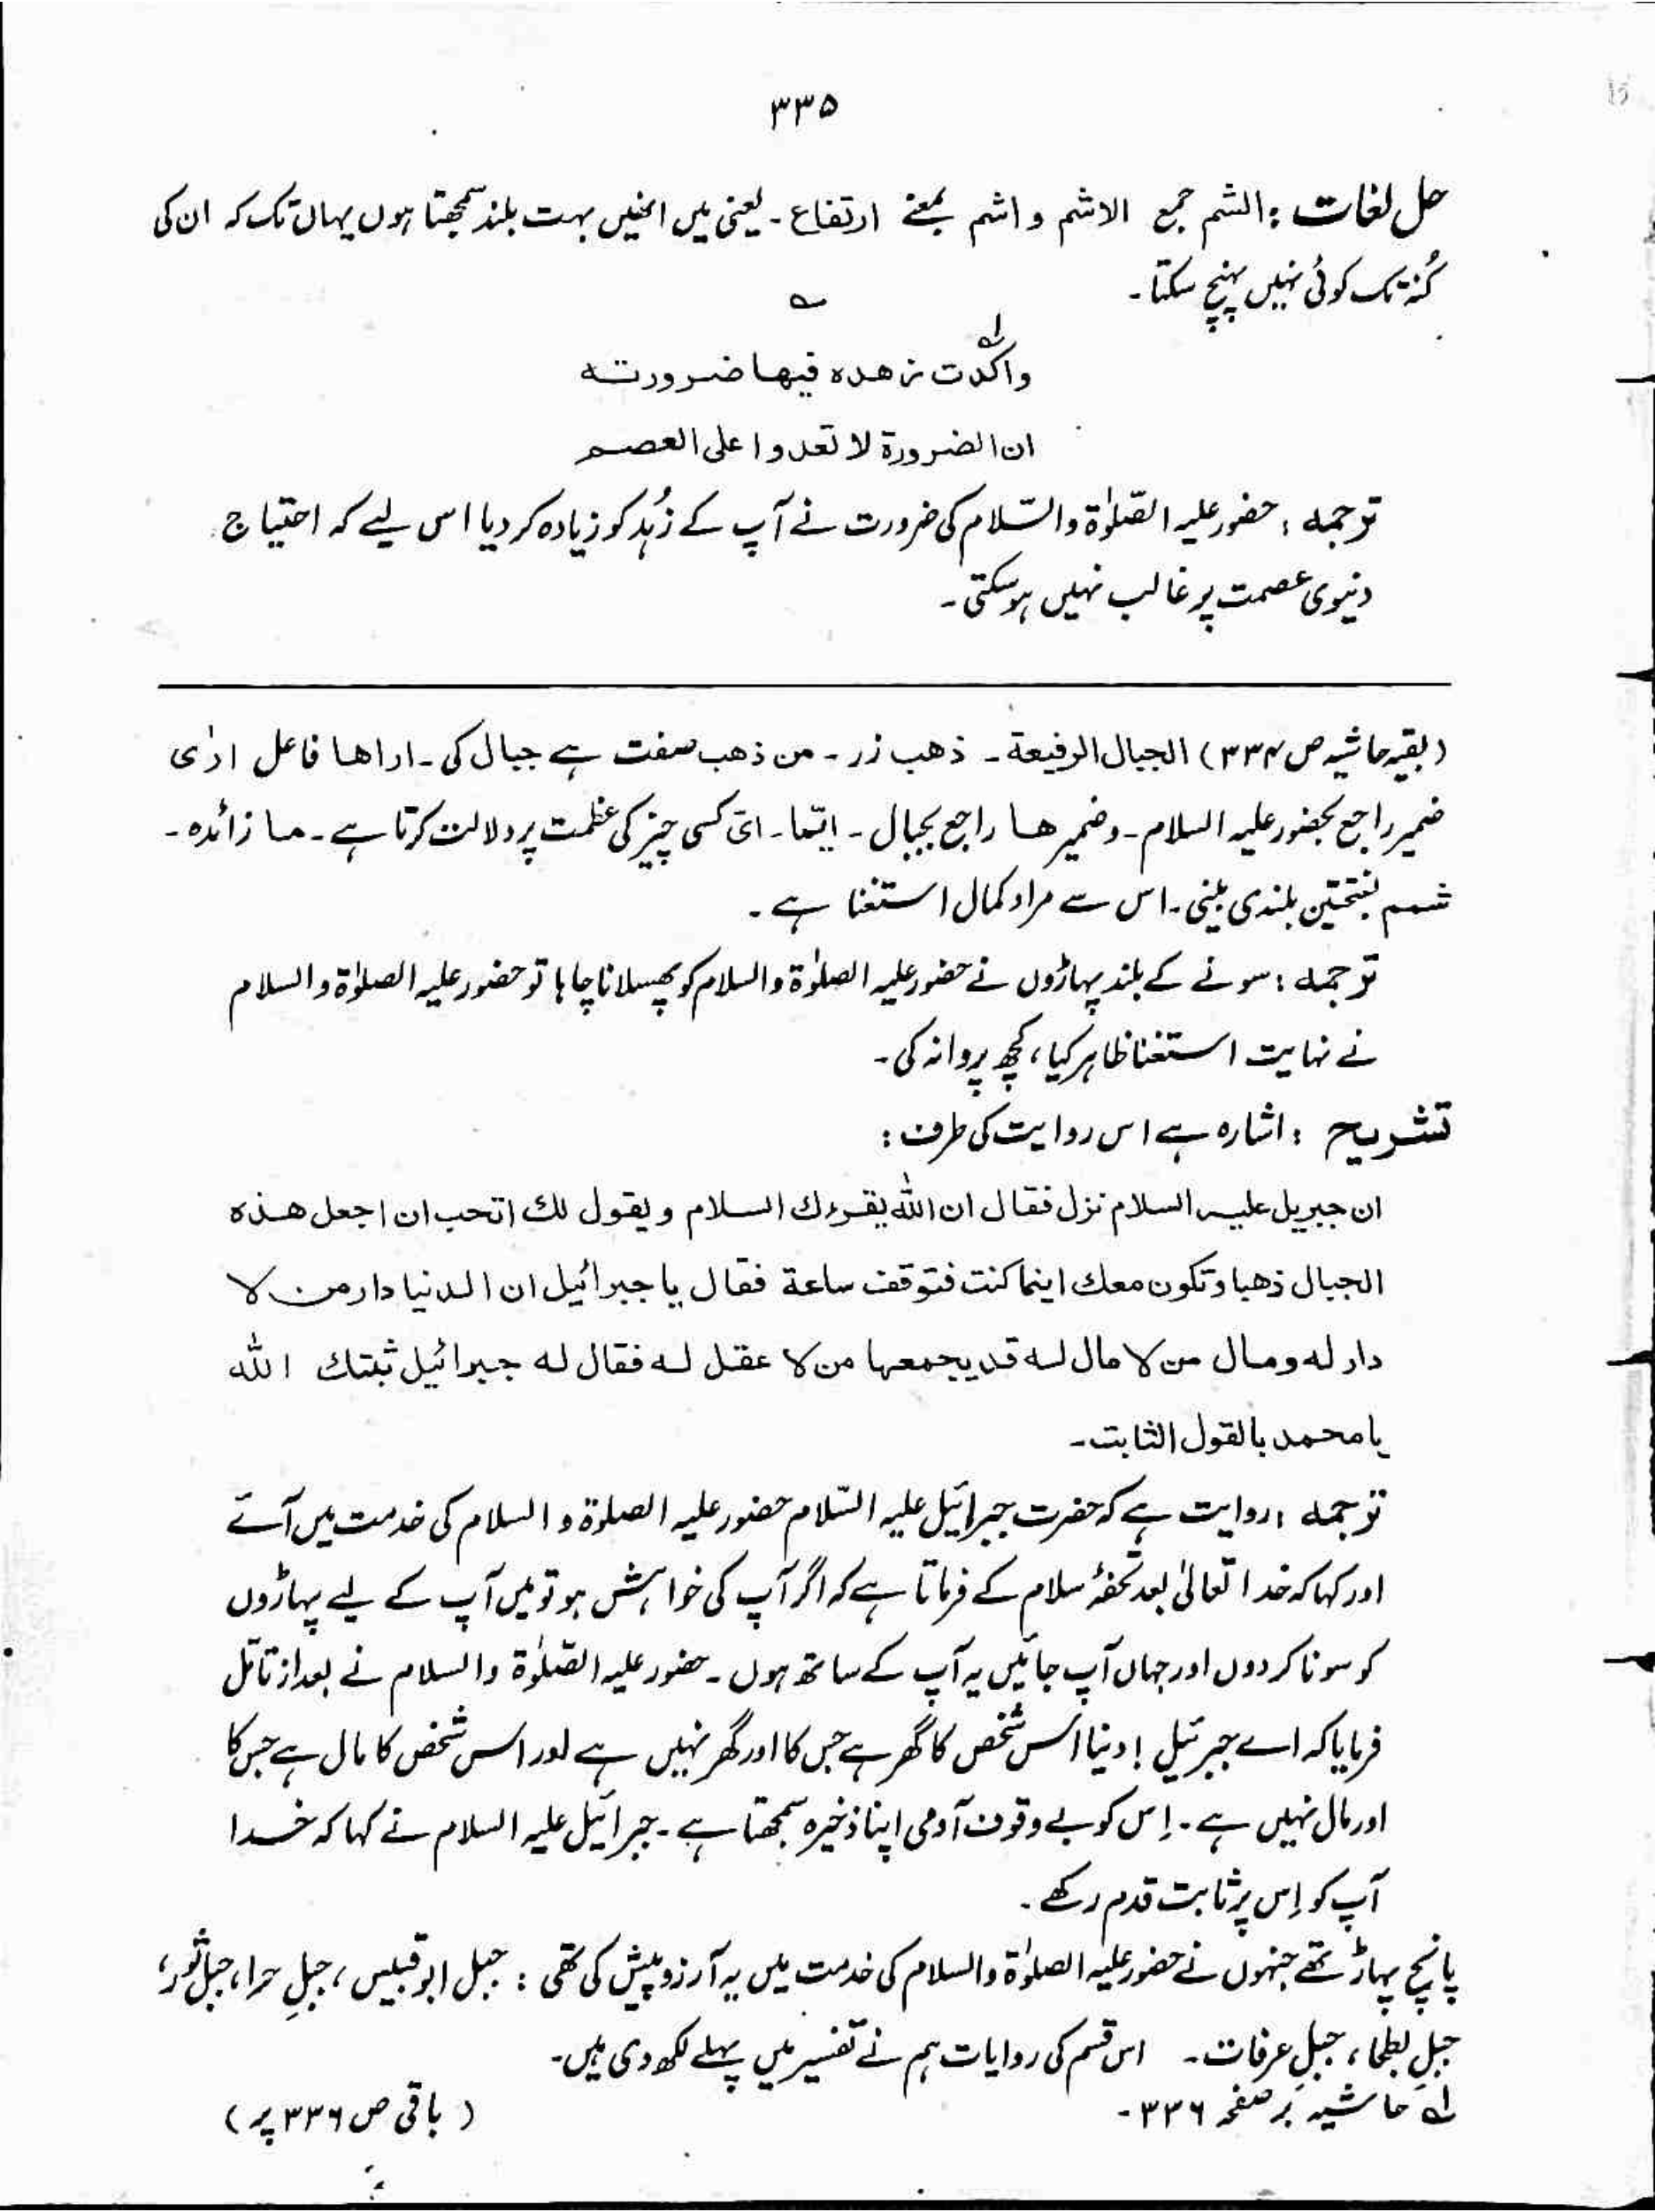 ۳۳۵
حل لغات : الشم جمع الاشم و اشم بمعنے ارتفاع ۔ یعنی میں انھیں بہت بلند سمجھتا ہوں یہاں تک کہ ان کی
کُنہ تک کوئی نہیں پہنچ سکتا ۔
واکّدت زھدہ فیھا ضرورتہ
ان الضرورۃ لا تعدوا علی العصم
ترجمہ : حضور علیہ الصّلوٰۃ والسّلام کی ضرورت نے آپ کے زُہد کو زیادہ کر دیا اس لیے کہ احتیاج
دنیوی عصمت پر غالب نہیں ہوسکتی ۔
(بقیہ حاشیہ ص ۳۳۴) الجبال الرفیعة ۔ ذھب زر ۔ من ذھب صفت ہے جبال کی ۔ اراھا فاعل ارٰی
ضمیر راجع بحضور علیہ السلام ۔ وضمیر ھا راجع بجبال ۔ ایّما ۔ ایّ کسی چیز کی عظمت پر دلالت کرتا ہے ۔ ما زائدہ ۔
شمم بفتحتین بلندی بینی ۔ اس سے مراد کمال استغنا ہے ۔
ترجمہ : سونے کے بلند پہاڑوں نے حضور علیہ الصلوٰۃ والسلام کو پھسلانا چاہا تو حضور علیہ الصلوٰۃ والسلام
نے نہایت استغنا ظاہر کیا ، کچھ پروا نہ کی ۔
تشریح : اشارہ ہے اس روایت کی طرف :
ان جبریل علیہ السلام نزل فقال ان اللہ یقرءك السلام ویقول لك اتحب ان اجعل ھذہ
الجبال ذھبا وتکون معك اینما کنت فتوقف ساعة فقال یا جبرائیل ان الدنیا دار من لا
دار لہ ومال من لا مال لہ قد یجمعہا من لا عقل لہ فقال لہ جبرائیل ثبتك اللہ
یا محمد بالقول الثابت ۔
ترجمہ : روایت ہے کہ حضرت جبرائیل علیہ السّلام حضور علیہ الصلوۃ و السلام کی خدمت میں آئے
اور کہا کہ خدا تعالیٰ بعد تحفۂ سلام کے فرماتا ہے کہ اگر آپ کی خواہش ہو تو میں آپ کے لیے پہاڑوں
کو سونا کر دوں اور جہاں آپ جائیں یہ آپ کے ساتھ ہوں ۔ حضور علیہ الصّلوٰۃ والسلام نے بعد از تامّل
فرمایا کہ اے جبرئیل ! دنیا اُس شخص کا گھر ہے جس کا اور گھر نہیں ہے اور اس شخص کا مال ہے جس کا
اور مال نہیں ہے ۔ اِس کو بے وقوف آدمی اپنا ذخیرہ سمجھتا ہے ۔ جبرائیل علیہ السلام نے کہا کہ خدا
آپ کو اِس پر ثابت قدم رکھے ۔
پانچ پہاڑ تھے جنہوں نے حضور علیہ الصلوٰۃ والسلام کی خدمت میں یہ آرزو پیش کی تھی : جبل ابو قبیس ، جبلِ حرا ، جبلِ ثور ،
جبلِ بطحا ، جبلِ عرفات ۔ اس قسم کی روایات ہم نے تفسیر میں پہلے لکھ دی ہیں ۔
لہ حاشیہ بر صفحہ ۳۳۶ ۔
( باقی ص ۳۳۶ پر )